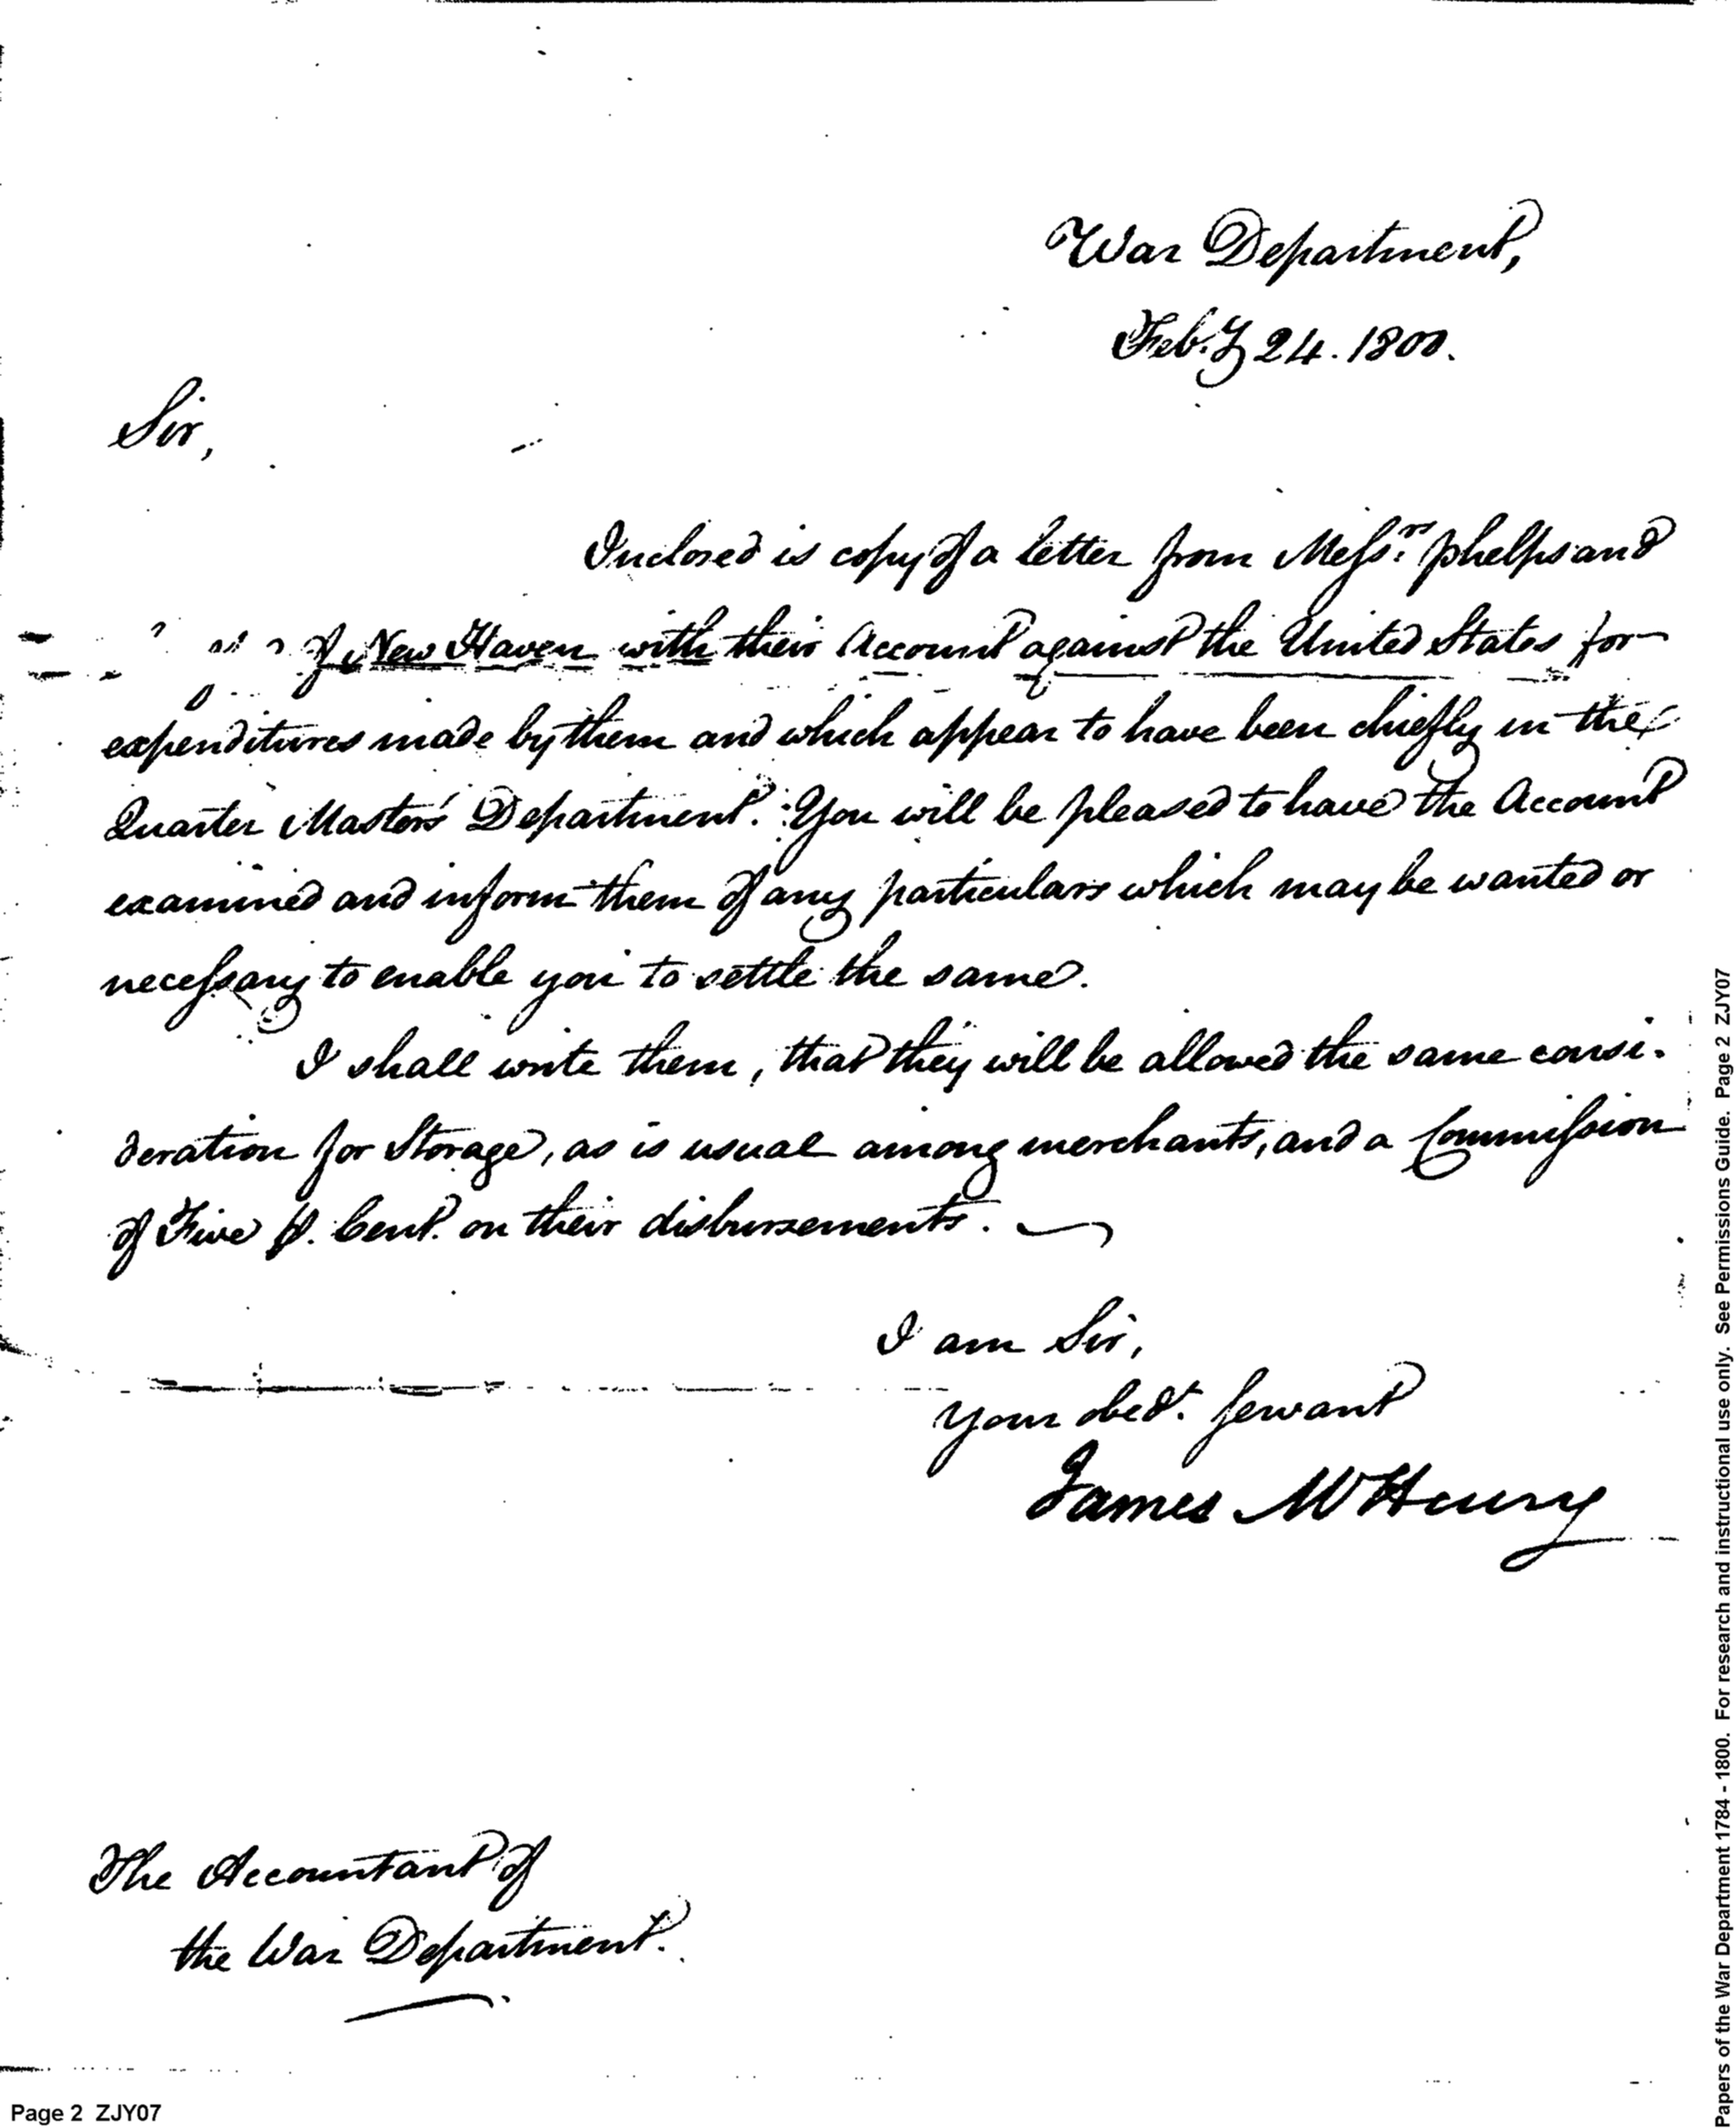 War Department,
Feb.y 24. 1800.
Sir,
Inclosed is copy of a letter from Messrs. phelps and
of New Haven with their Account against the United States for
expenditures made by them and which appear to have been chiefly in the
Quarter Masters' Department. You will be pleased to have the Account
examined and inform them of any particulars which may be wanted or
necessary to enable you to settle the same.
I shall write them, that they will be allowed the same consi-
deration for Storage, as is usual among merchants, and a Commission
of Five P. Cent. on their disbursements.
I am Sir,
your obedt. servant
James McHenry
The Accountant of
the War Department.
Page 2 ZJY07
Papers of the War Department 1784 - 1800. For research and instructional use only. See Permissions Guide. Page 2 ZJY07